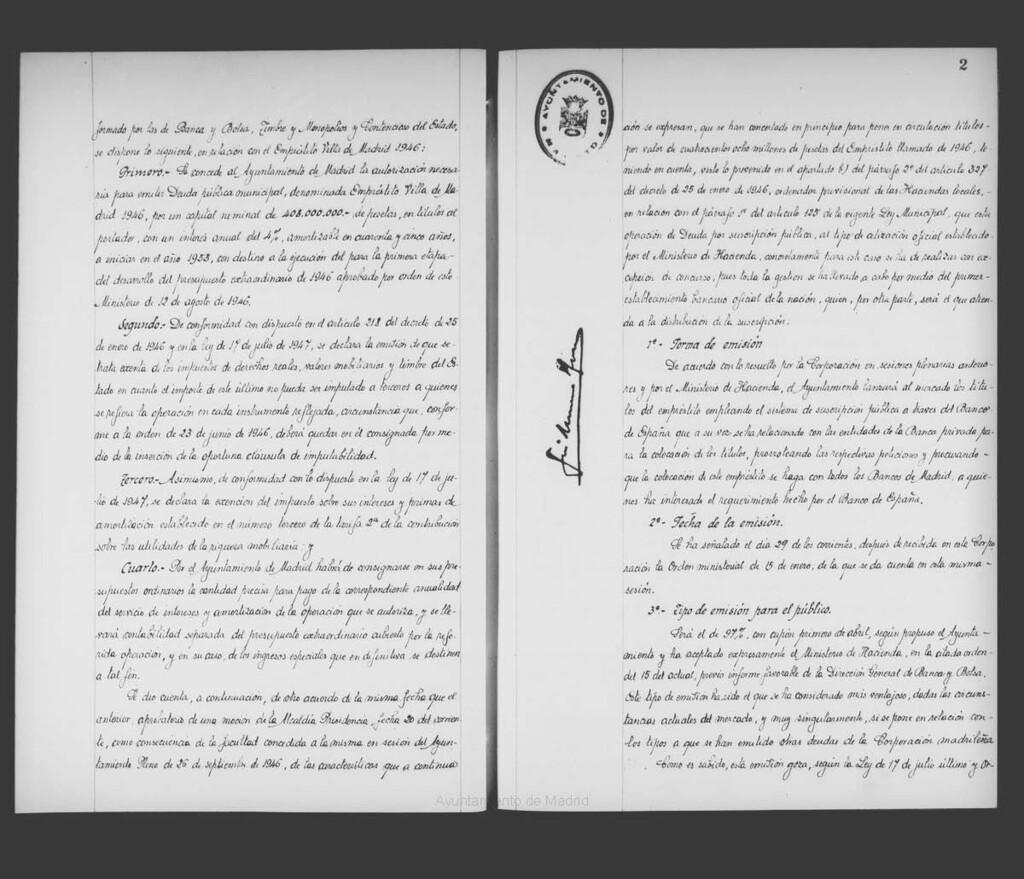 formado por las de Banca y Bolsa, Timbre y Monopolios y Contencioso del Estado,
se dispone lo siguiente, en relación con el Empréstito Villa de Madrid 1946:
Primero.- Se concede al Ayuntamiento de Madrid la autorización necesa-
ria para emitir Deuda pública municipal, denominada Empréstito Villa de Ma-
drid 1946, por un capital nominal de 408.000.000.- de pesetas, en títulos al
portador, con un interés anual del 4%, amortizable en cuarenta y cinco años,
a iniciar en el año 1953, con destino a la ejecución del para la primera etapa-
del desarrollo del presupuesto extraordinario de 1946 aprobado por orden de este
Ministerio de 12 de agosto de 1946.
Segundo.- De conformidad con dispuesto en el artículo 218 del decreto de 25
de enero de 1946 y en la ley de 17 de julio de 1947, se declara la emisión de que se-
trata exenta de los impuestos de derechos reales, valores mobiliarios y timbre del Es-
tado en cuanto el importe de este último no pueda ser imputado a terceros a quienes
se refiera la operación en cada instrumento reflejada, circunstancia que, confor-
me a la orden de 23 de junio de 1946, deberá quedar en él consignada por me-
dio de la inserción de la oportuna cláusula de imputabilidad.
Tercero.- Asimismo, de conformidad con lo dispuesto en la ley de 17 de ju-
lio de 1947, se declara la exención del impuesto sobre sus intereses y primas de
amortización establecido en el número tercero de la tarifa 2ª de la contribución
sobre las utilidades de la riqueza mobiliaria; y
Cuarto.- Por el Ayuntamiento de Madrid habrá de consignarse en sus pre-
supuestos ordinarios la cantidad precisa para pago de la correspondiente anualidad
del servicio de intereses y amortización de la operación que se autoriza, y se lle-
vará contabilidad separada del presupuesto extraordinario cubierto por la refe-
rida operación, y en su caso, de los ingresos especiales que en definitiva se destinen
a tal fin.
Se dio cuenta, a continuación, de otro acuerdo de la misma fecha que el
anterior, aprobatorio de una moción de la Alcaldía Presidencia, fecha 20 del corrien-
te, como consecuencia de la facultad concedida a la misma en sesión del Ayun-
tamiento Pleno de 26 de septiembre de 1946, de las características que a continua
2
AYUNTAMIENTO DE
ción se expresan, que se han concertado en principio para poner en circulación títulos-
por valor de cuatrocientos ocho millones de pesetas del Empréstito llamado de 1946, te-
niendo en cuenta, visto lo prevenido en el apartado b) del párrafo 2º del artículo 327
del decreto de 25 de enero de 1946, ordenador provisional de las Haciendas locales,-
en relación con el párrafo 1º del artículo 125 de la vigente Ley Municipal, que esta
operación de Deuda por suscripción pública, al tipo de cotización oficial establecido
por el Ministerio de Hacienda, concretamente para este caso se ha de realizar con ex-
cepción de concurso, pues toda la gestión se ha llevado a cabo por medio del primer-
establecimiento bancario oficial de la nación, quien, por otra parte, será el que atien-
da a la distribución de la suscripción.
1º- Forma de emisión
De acuerdo con lo resuelto por la Corporación en sesiones plenarias anterio-
res y por el Ministerio de Hacienda, el Ayuntamiento lanzará al mercado los títu-
los del empréstito empleando el sistema de suscripción pública a través del Banco
de España que a su vez se ha relacionado con las entidades de la Banca privada pa-
ra la colocación de los títulos, prorrateando las respectivas peticiones y procurando-
que la colocación de este empréstito se haga con todos los Bancos de Madrid, a quie-
nes ha interesado el requerimiento hecho por el Banco de España.
2º- Fecha de la emisión.
Se ha señalado el día 29 de los corrientes, después de recibida en este Corpo
ración la Orden ministerial de 15 de enero, de la que se da cuenta en esta misma-
sesión.
3º- Tipo de emisión para el público.
Será el de 97%, con cupón primero de abril, según propuso el Ayunta-
miento y ha aceptado expresamente el Ministerio de Hacienda, en la citada orden-
del 15 del actual, previo informe favorable de la Dirección General de Banca y Bolsa.
Este tipo de emisión ha sido el que se ha considerado más ventajoso, dadas las circuns-
tancias actuales del mercado, y muy singularmente, si se pone en relación con-
los tipos a que se han emitido otras deudas de la Corporación madrileña
Como es sabido, esta emisión goza, según la Ley de 17 de julio último y Or-
Ayuntamiento de Madrid